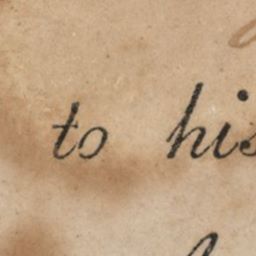 to his